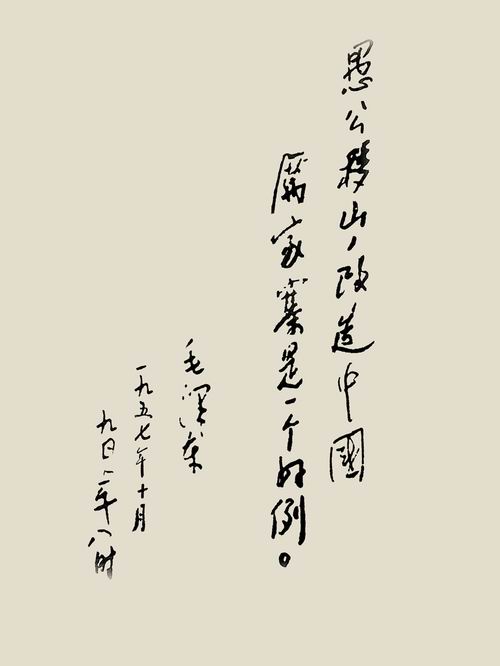 愚公移山,改造中國
厲家寨是一个好例。
毛澤东
一九五七年十月
九日上午八时